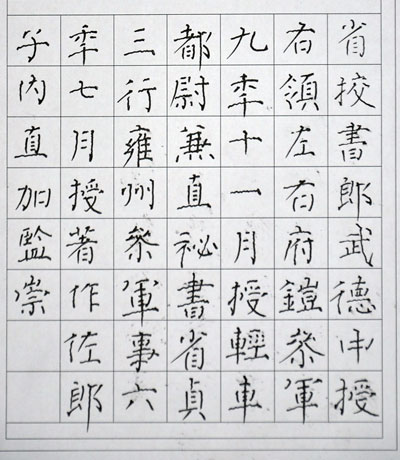 省挍書郎武德中授
右領左右府鎧叅軍
九秊十一月授輕車
都尉兼直祕書省貞
三行雍州叅軍事六
秊七月授著作佐郎
子内直加監崇